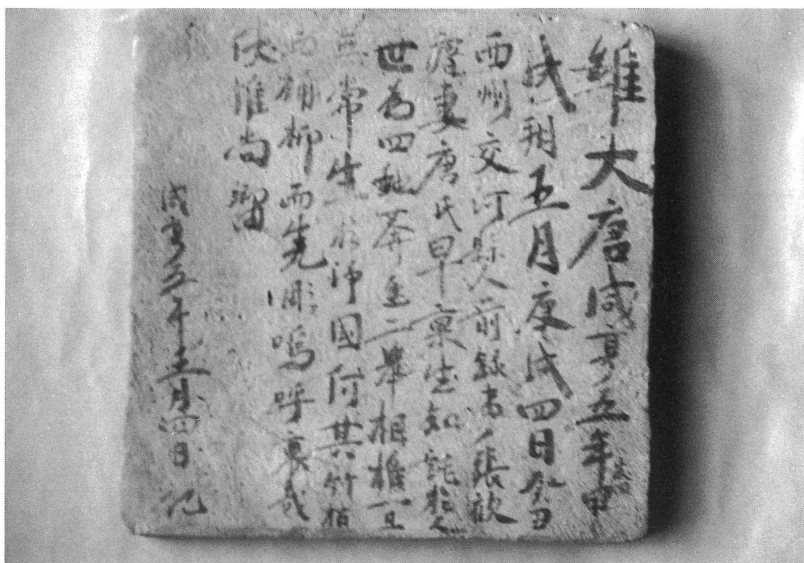 維大唐咸亨五年甲
戌朔五月庚戌四日癸丑
西州交河縣人前錄事張歡
妻唐氏早稟生知
世為四二舉相推一旦
無常生於淨國何其竹柏
柳而先彫嗚呼哀哉
伏惟尚饗
咸亨五年五月四日記